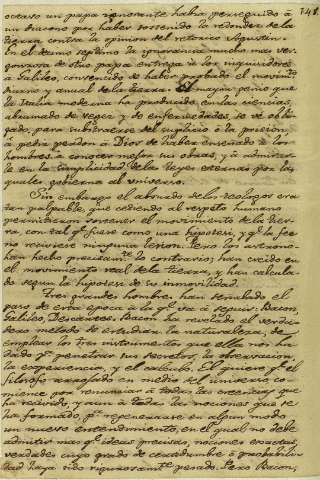 748.
ocaso un papa ignorante había perseguido á
un buseno por haber sostenido la redondez de la
tierra contra la opinion del retorico Agustin.
En el decimo septimo la ignorancia mucho mas ver-
gonzosa de otro papa entrega á los inquisidores
a Galileo, convencido de haber probado el movimto
diurno y anual de la tierra. El mayor genio que
la Italia moderna ha producido en las ciencias,
abrumado de vejez y de enfermedades, se ve obli-
gado, para substraerse del suplicio ó la prisión,
á pedir perdon á Dios de haber enseñado á los
hombres á conocer mejor sus obras, y á admirar-
le en la simplicidad de las leyes eternas por las
quales gobierna el universo.
Sin embargo el absurdo de los teologos era
tan palpable, que cediendo al respeto humano
permitieron sostener el movimiento de la tier-
ra, con tal qe fuese como una hipotesi, y qe la fe
no recibiese ninguna lesion. Pero los astrono-
mos han hecho precisamte lo contrario; han creido en
el movimiento real de la tierra, y han calcula-
do segun la hipotesi de su inmovilidad.
Tres grandes hombres han señalado el
paso de esta época á la qe va á seguir: Bacon,
Galileo, Descartes. Bacon ha revelado el verda-
dero metodo de estudiar la naturaleza, de
emplear los tres instrumentos que ella nos ha
dado pa penetrar sus secretos, la observacion,
la experiencia, y el calculo. El quiere qe el
filosofo arrojado en medio del universo co-
mience por renunciar á todas las creencias que
ha recivido, y aun á todas las nociones que se
ha formado, pa regenerarse en algun modo
un nuevo entendimiento, en el qual no debe
admitir mas qe ideas precisas, nociones exactas,
verdades cuyo grado de certidumbre ó probabili-
dad haya sido rigurosamte pesado. Pero Bacon,